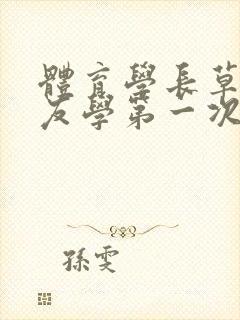 體育學長草
友學第一次
孫雯